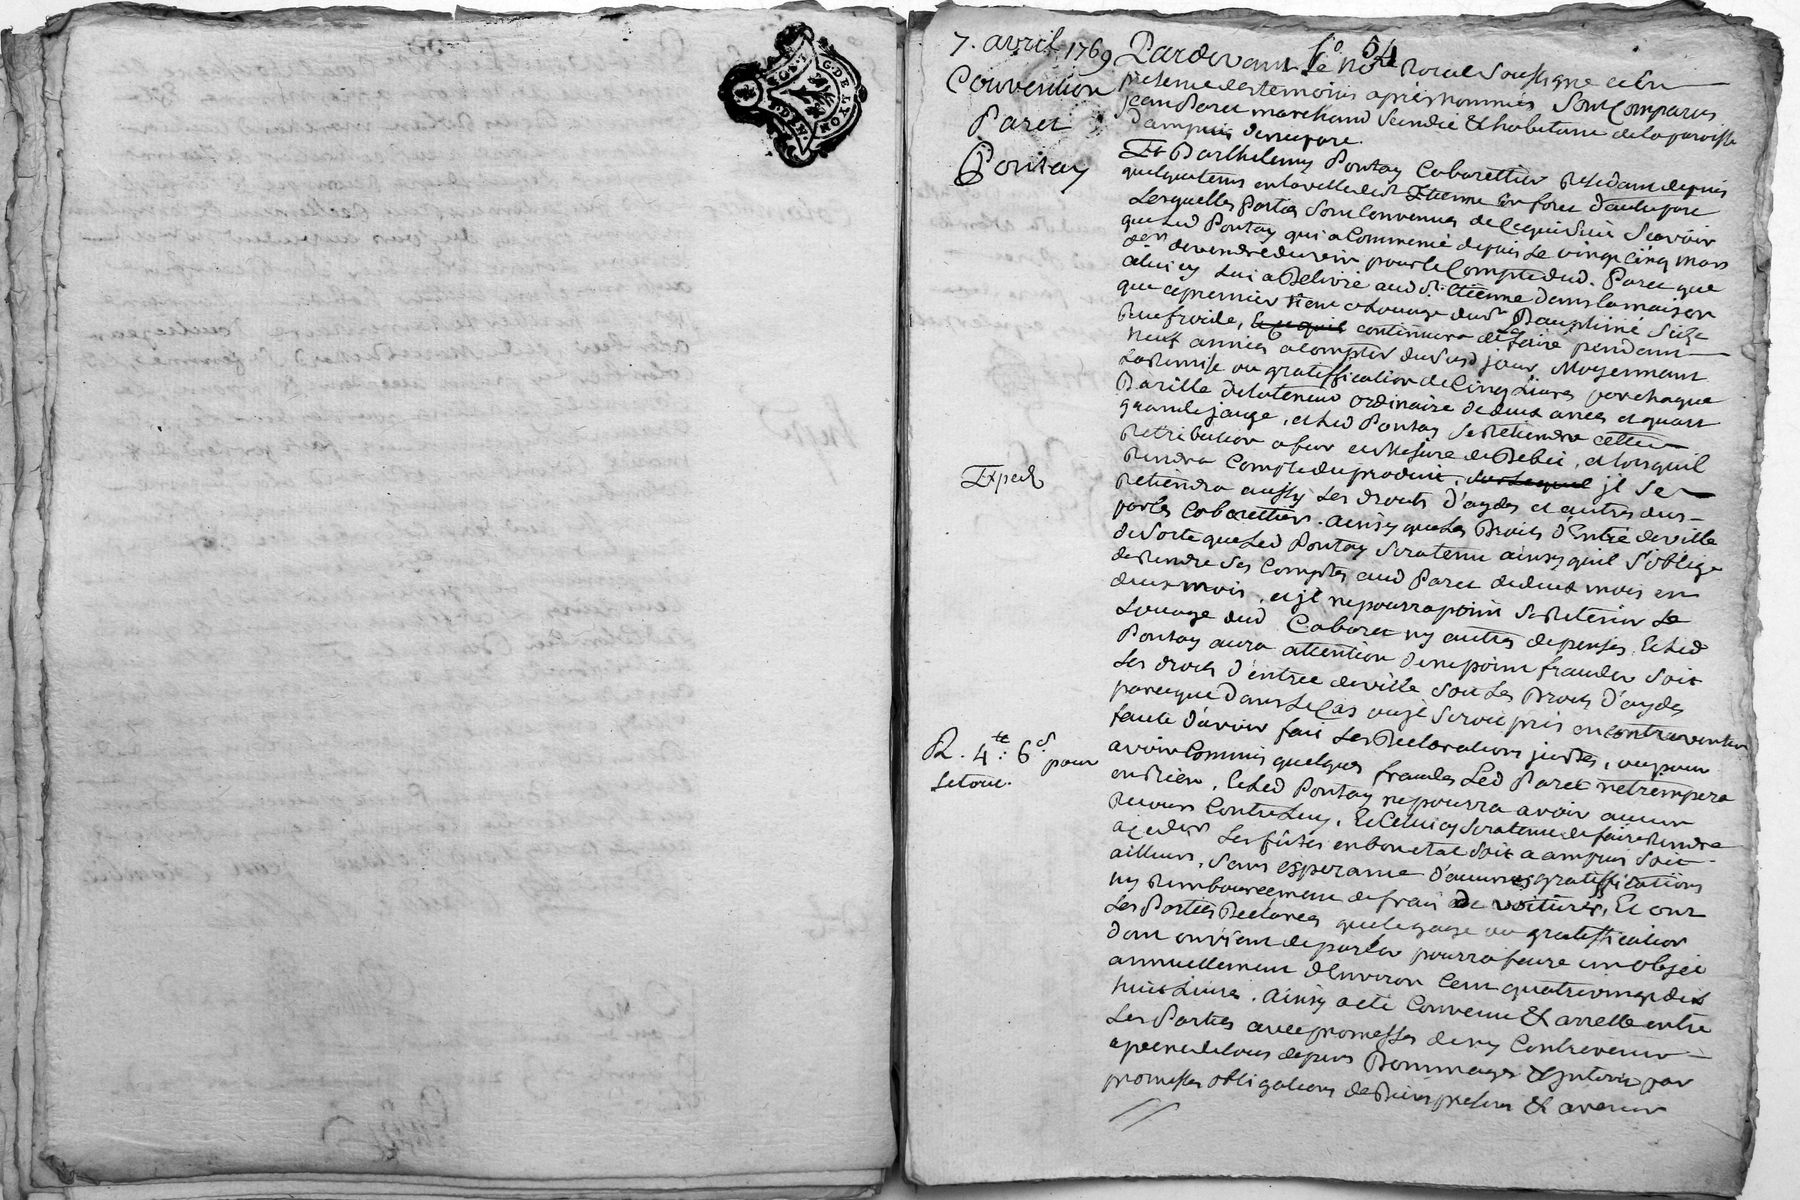 G. DE LYON
DEN.
fo. 54
7. avril 1769
Convention
Paret
Pontay
Exped
R. 4tt: 6s pour
letout.
Pardevant Le no.re Roial Soussigné et En
présence des temoins après nommés, Sont Comparus
jean Paret marchand Scindic & habitant de la paroisse
d'ampuis d'unepart.
Et Barthelemy Pontay Cabarettier Residant depuis
quelquetems en laville de St Etienne En forez d'autrepart
Lesquelles Parties Sont Convenues de Cequi Suit Scavoir
que Led Pontay qui a Commencé depuis Le vingt cinq mars
der devendre du vin pour le Compte dud. Paret que
celui cy Lui a Delivré aud St Etienne dans la maison
que cepremier tient a Louage du Sr Dauphiné Size
Rue froide, continuera de Le faire pendant
neuf années acompter du Susd jour, Moyennant
La Remise ou gratiffication de Cinq Livres par chaque
Barille de lateneur ordinaire de deux anées et quart
grande jauge, et Led Pontay Se Retiendra cette
Retribution a fur et Mesure du Debit, et Lorsqu'il
Rendra Compte du produit, il Se
Retiendra aussy Les droits d'aydes et autres dus
par les Cabarettiers, ainsy que Les Droits d'Entrée de ville
de Sorte que Led Pontay Sera tenu ainsy qu'il S'oblige
de Rendre Ses Comptes aud Paret de deux mois en
deux mois, et jl ne pourra point Se Retenir Le
Louage dud Cabaret ny autres depenses. Et Led
Pontay aura attention de ne point frauder Soit
Les droits d'entrée de ville Soit Les Droits d'aydes
parceque Dans Le Cas ou jl Seroit pris en contravention
faute d'avoir fait Les Declarations justes, ou pour
avoir Commis quelques fraudes Led Paret n'etrempera
en Rien, Et Led Pontay ne pourra avoir aucun
Recours Contre Luy, Et Celui cy Sera tenu de faire Rendre
a ce der Les fûtes en bon etat Soit a ampuis Soit
ailleurs, Sans esperance d'aucunes gratiffications
ny Remboursement de frais de voitures, Et ont
Les Parties Declarées que le gage ou gratiffication
dont on vient de parler pourra faire un objet
annuellement d'Environ Cent quatrevingt dix
huit Livres. Ainsy a eté Convenu & arretté entre
Les Parties avec promesses de n'y Contrevenir
apeine de tous depens Dommages & jnterets par
promesses obligations de Biens presens & avenir